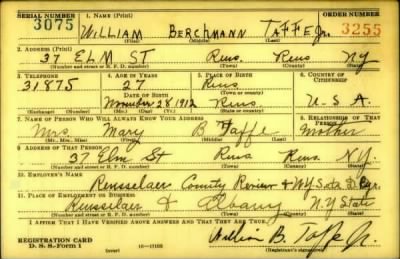 SERIAL NUMBER 1. NAME (Print) ORDER NUMBER
3075 WILLIAM BERCHMANN TAFFE Jr. 3255
(First) (Middle) (Last)
2. ADDRESS (Print)
37 ELM ST Rens. Rens NY
(Number and street or R. F. D. number) (Town) (County) (State)
3. TELEPHONE 4. AGE IN YEARS 5. PLACE OF BIRTH 6. COUNTRY OF CITIZENSHIP
31875 27 Rens
DATE OF BIRTH (Town or county)
November 28 1912 Rens U.S.A.
(Exchange) (Number) (Mo.) (Day) (Yr.) (State or country)
7. NAME OF PERSON WHO WILL ALWAYS KNOW YOUR ADDRESS 8. RELATIONSHIP OF THAT PERSON
Mrs. Mary B Taffe Mother
(Mr., Mrs., Miss) (First) (Middle) (Last)
9. ADDRESS OF THAT PERSON
37 Elm St Rens Rens. N.Y.
(Number and street or R. F. D. number) (Town) (County) (State)
10. EMPLOYER'S NAME
Rensselaer County Review & N.Y. State
11. PLACE OF EMPLOYMENT OR BUSINESS
Rensselaer & Albany N.Y. State
(Number and street or R. F. D. number) (Town) (County) (State)
I AFFIRM THAT I HAVE VERIFIED ABOVE ANSWERS AND THAT THEY ARE TRUE.
REGISTRATION CARD William B. Taffe Jr.
D. S. S. Form 1 (Registrant's signature)